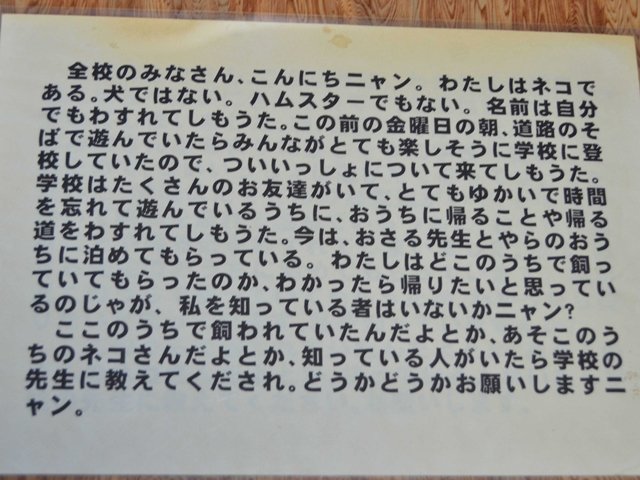 全校のみなさん、こんにちニャン。わたしはネコで
ある。犬ではない。ハムスターでもない。名前は自分
でもわすれてしもうた。この前の金曜日の朝、道路のそ
ばで遊んでいたらみんながとても楽しそうに学校に登
校していたので、ついいっしょについて来てしもうた。
学校はたくさんのお友達がいて、とてもゆかいで時間
を忘れて遊んでいるうちに、おうちに帰ることや帰る
道をわすれてしもうた。今は、おさる先生とやらのおう
ちに泊めてもらっている。わたしはどこのうちで飼っ
ていてもらったのか、わかったら帰りたいと思ってい
るのじゃが、私を知っている者はいないかニャン?
ここのうちで飼われていたんだよとか、あそこのう
ちのネコさんだよとか、知っている人がいたら学校の
先生に教えてくだされ。どうかどうかお願いしますニ
ャン。